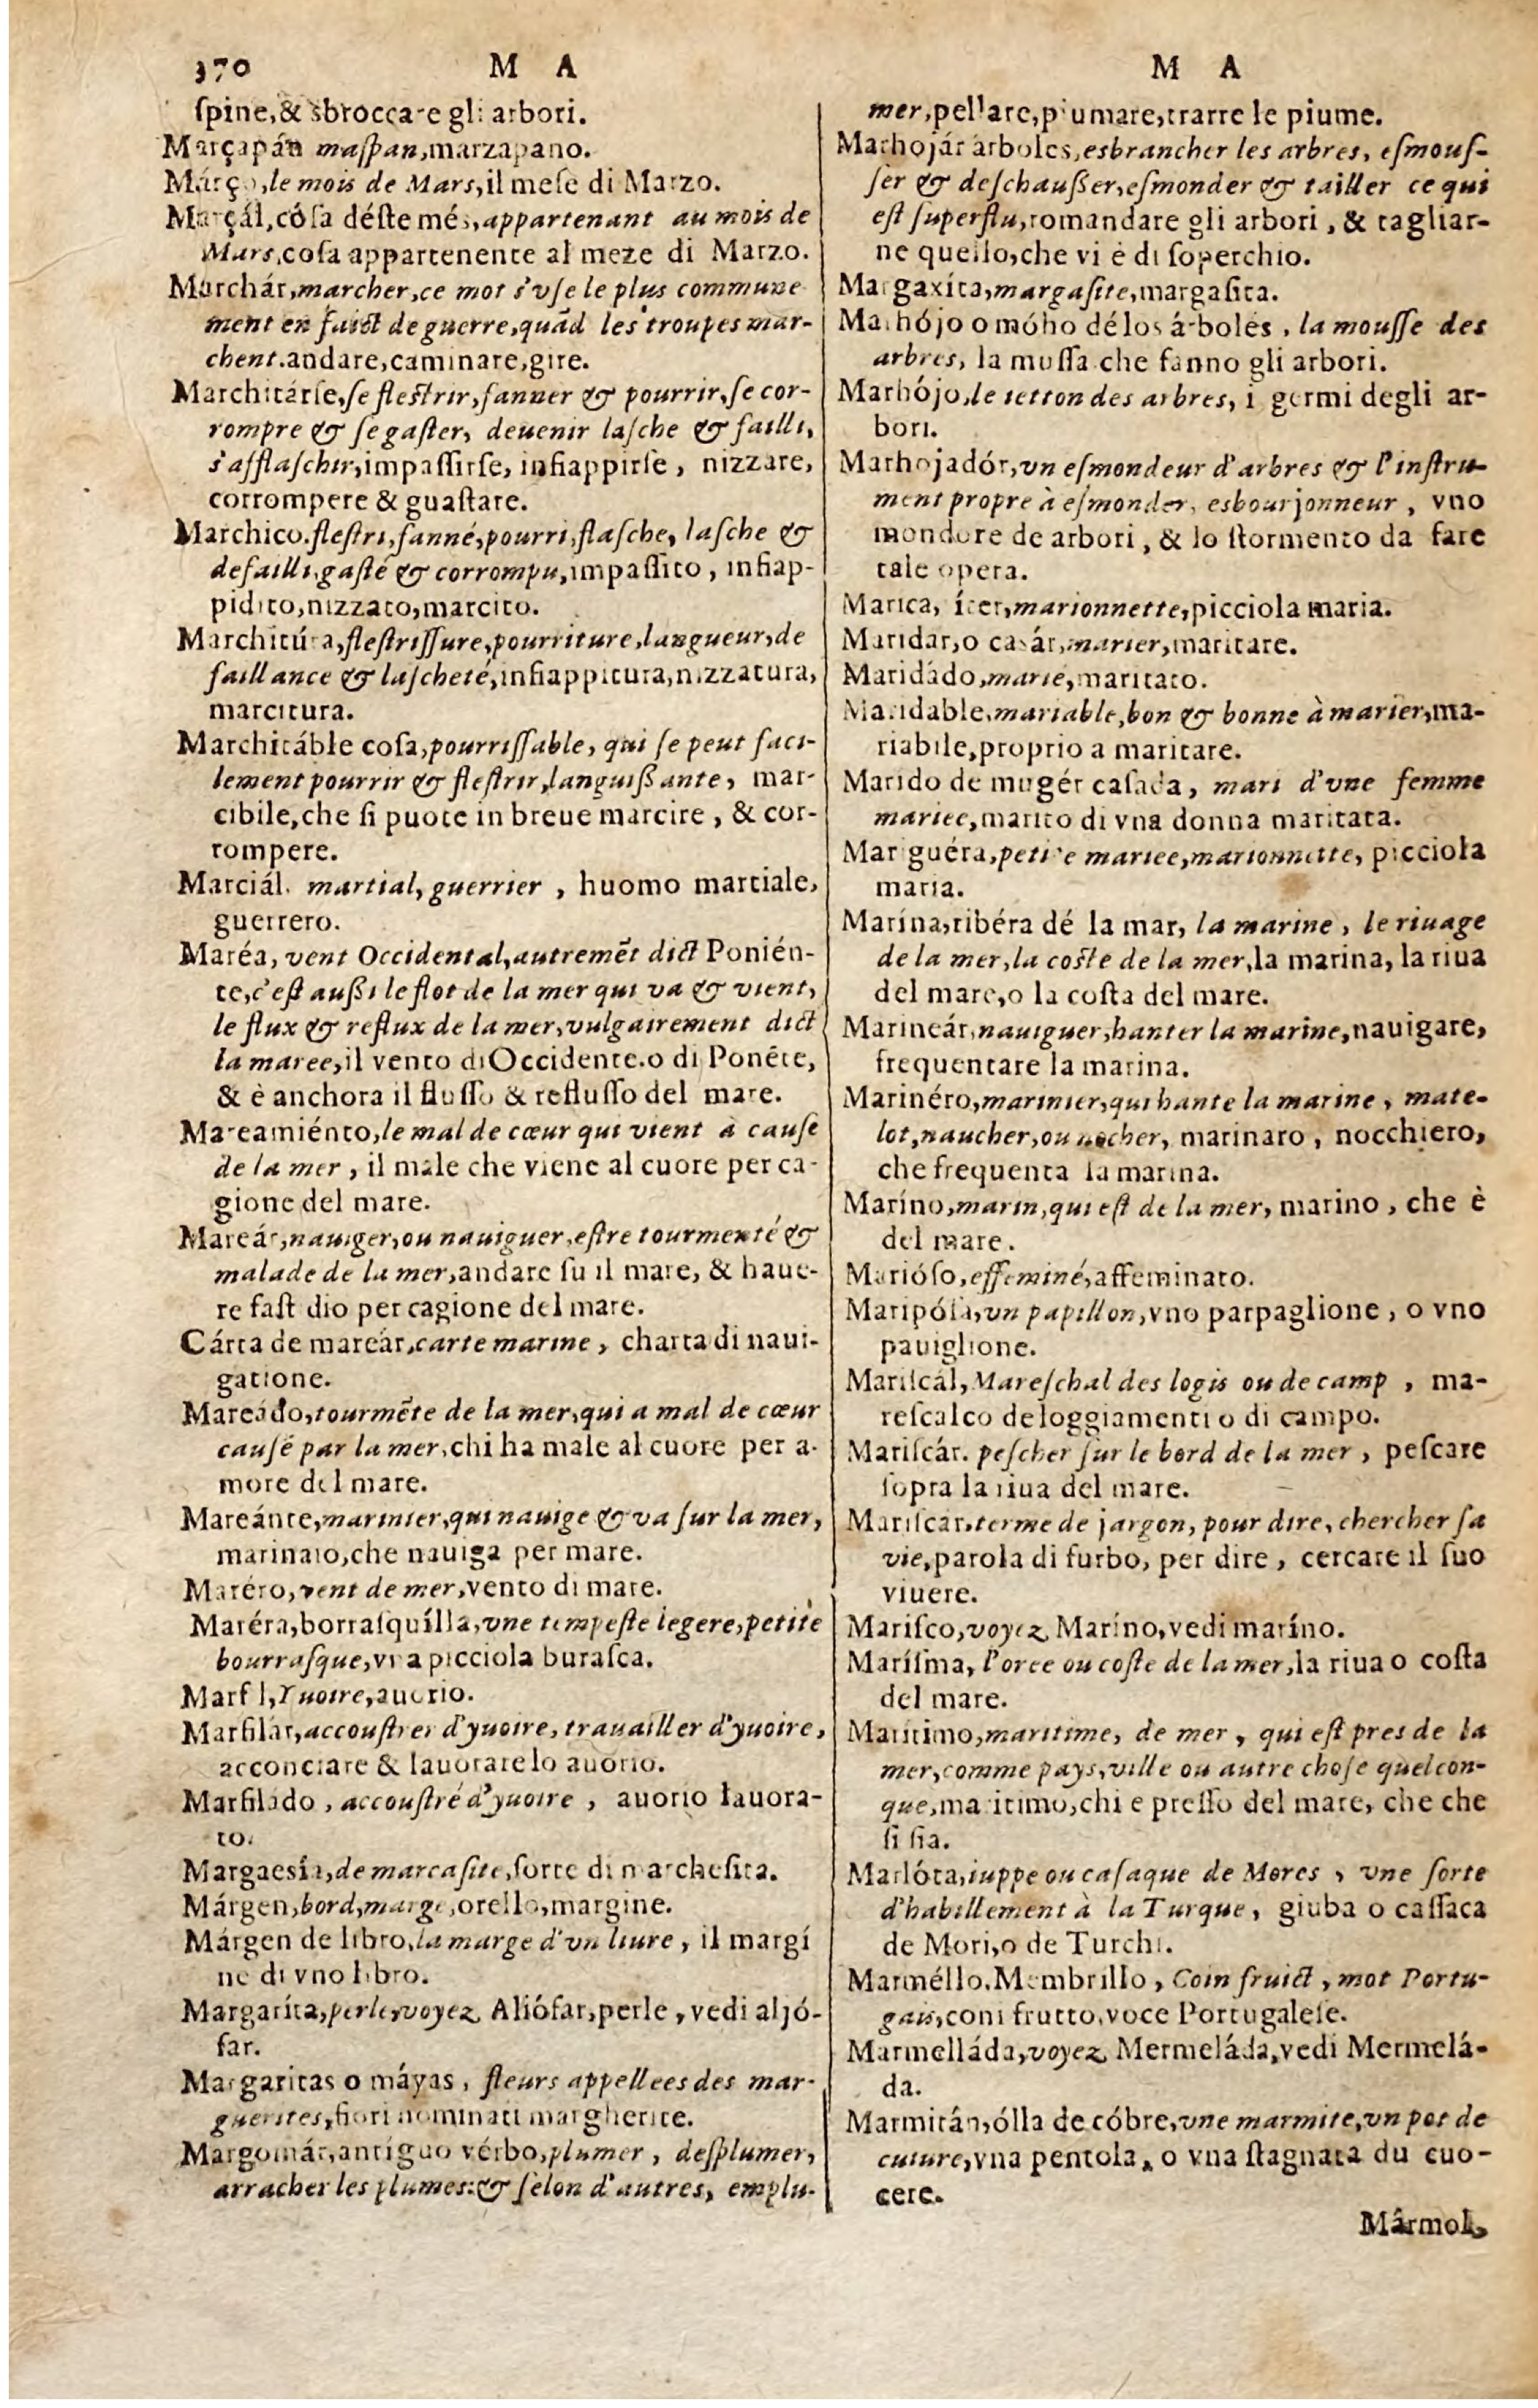 370 M A
M A
ſpine,& sbroccare gli arbori.
Marçapán maſpan,marzapano.
Márço,le mois de Mars,il meſe di Marzo.
Marçál,cóſa déſte més,appartenant au mois de
Mars,coſa appartenente al meze di Marzo.
Marchár,marcher,ce mot s'vſe le plus commune
ment en faict de guerre,quãd les troupes mar-
chent.andare,caminare,gire.
Marchitárſe,ſe fleſtrir,fanner & pourrir,ſe cor-
rompre & ſe gaſter, deuenir laſche & failli,
s'afflaſchir,impaſſirſe, infiappirſe, nizzare,
corrompere & guaſtare.
Marchito.fleſtri,fanné,pourri,flaſche, laſche &
defailli,gaſté & corrompu,impaſſito, infiap-
pidito,nizzato,marcito.
Marchitúra,fleſtriſſure,pourriture,langueur,de
faillance & laſcheté,infiappitura,nizzatura,
marcitura.
Marchitáble coſa,pourriſſable, qui ſe peut faci-
lement pourrir & fleſtrir,languißante, mar-
cibile,che ſi puote in breue marcire, & cor-
rompere.
Marciál. martial, guerrier, huomo martiale,
guerrero.
Maréa, vent Occidental,autremẽt dict Ponién-
te,c'eſt außi le flot de la mer qui va & vient,
le flux & reflux de la mer,vulgairement dict
la maree,il vento di Occidente.o di Ponẽte,
& è anchora il fluſſo & refluſſo del mare.
Mareamiénto,le mal de cœur qui vient à cauſe
de la mer, il male che viene al cuore per ca-
gione del mare.
Mareár,nauiger,ou nauiguer,eſtre tourmenté &
malade de la mer,andare ſu il mare, & haue-
re faſt dio per cagione del mare.
Cárta de mareár,carte marine, charta di naui-
gatione.
Mareádo,tourmẽte de la mer,qui a mal de cœur
cauſé par la mer,chi ha male al cuore per a-
more del mare.
Mareánte,marinier,qui nauige & va ſur la mer,
marinaio,che nauiga per mare.
Maréro,vent de mer,vento di mare.
Maréra,borraſquílla,vne tempeſte legere,petite
bourraſque,vna picciola buraſca.
Marf l,Yuoire,auorio.
Marfilár,accouſtrer d'yuoire, trauailler d'yuoire,
acconciare & lauorare lo auorio.
Marfiládo, accouſtré d'yuoire, auorio lauora-
to.
Margaesía,de marcaſite,ſorte di marcheſita.
Márgen,bord,marge,orello,margine.
Márgen de libro,la marge d'vn liure, il margí
ne di vno libro.
Margaríta,perle,voyez Aliófar,perle, vedi aljó-
far.
Margaritas o máyas, fleurs appellees des mar-
guerites,fiori nominati margherite.
Margomár,antíguo vérbo,plumer, deſplumer,
arracher les plumes:& ſelon d'autres, emplu-
mer,pellare,piumare,trarre le piume.
Marhojár árboles,esbrancher les arbres, eſmouſ-
ſer & deſchaußer,eſmonder & tailler ce qui
eſt ſuperflu,romandare gli arbori, & tagliar-
ne quello,che vi è di ſoperchio.
Margaxíta,margaſite,margaſita.
Marhójo o móho dé los árboles, la mouſſe des
arbres, la muſſa che fanno gli arbori.
Marhójo,le tetton des arbres, i germi degli ar-
bori.
Marhojadór,vn eſmondeur d'arbres & l'inſtru-
ment propre à eſmonder, esbourjonneur, vno
mondore de arbori, & lo ſtormento da fare
tale opera.
Marica, íter,marionnette,picciola maria.
Maridar,o casár,marier,maritare.
Maridádo,marié,maritato.
Maridable,mariable,bon & bonne à marier,ma-
riabile,proprio a maritare.
Marido de mugér caſada, mari d'vne femme
mariee,marito di vna donna maritata.
Mariguéra,petite mariee,marionnette, picciola
maria.
Marína,ribéra dé la mar, la marine, le riuage
de la mer,la coſte de la mer,la marina, la riua
del mare,o la coſta del mare.
Marineár,nauiguer,hanter la marine,nauigare,
frequentare la marina.
Marinéro,marinier,qui hante la marine, mate-
lot,naucher,ou nocher, marinaro, nocchiero,
che frequenta la marina.
Maríno,marin,qui eſt de la mer, marino, che è
del mare.
Marióſo,effeminé,affeminato.
Maripóſa,vn papillon,vno parpaglione, o vno
pauiglione.
Mariſcál,Mareſchal des logis ou de camp, ma-
reſcalco de loggiamenti o di campo.
Mariſcár. peſcher ſur le bord de la mer, peſcare
ſopra la riua del mare.
Mariſcar.terme de jargon, pour dire, chercher ſa
vie,parola di furbo, per dire, cercare il ſuo
viuere.
Mariſco,voyez Maríno,vedi maríno.
Maríſma, l'oree ou coſte de la mer,la riua o coſta
del mare.
Marítimo,maritime, de mer, qui eſt pres de la
mer,comme pays,ville ou autre choſe quelcon-
que,maritimo,chi e preſſo del mare, che che
ſi ſia.
Marlóta,iuppe ou caſaque de Mores, vne ſorte
d'habillement à la Turque, giuba o caſſaca
de Mori,o de Turchi.
Marméllo.Membrillo, Coin fruict, mot Portu-
gais,coni frutto,voce Portugaleſe.
Marmelláda,voyez Mermeláda,vedi Mermelá-
da.
Marmitán,ólla de cóbre,vne marmite,vn pot de
cuiure,vna pentola, o vna ſtagnata du cuo-
cere.
Mármol,